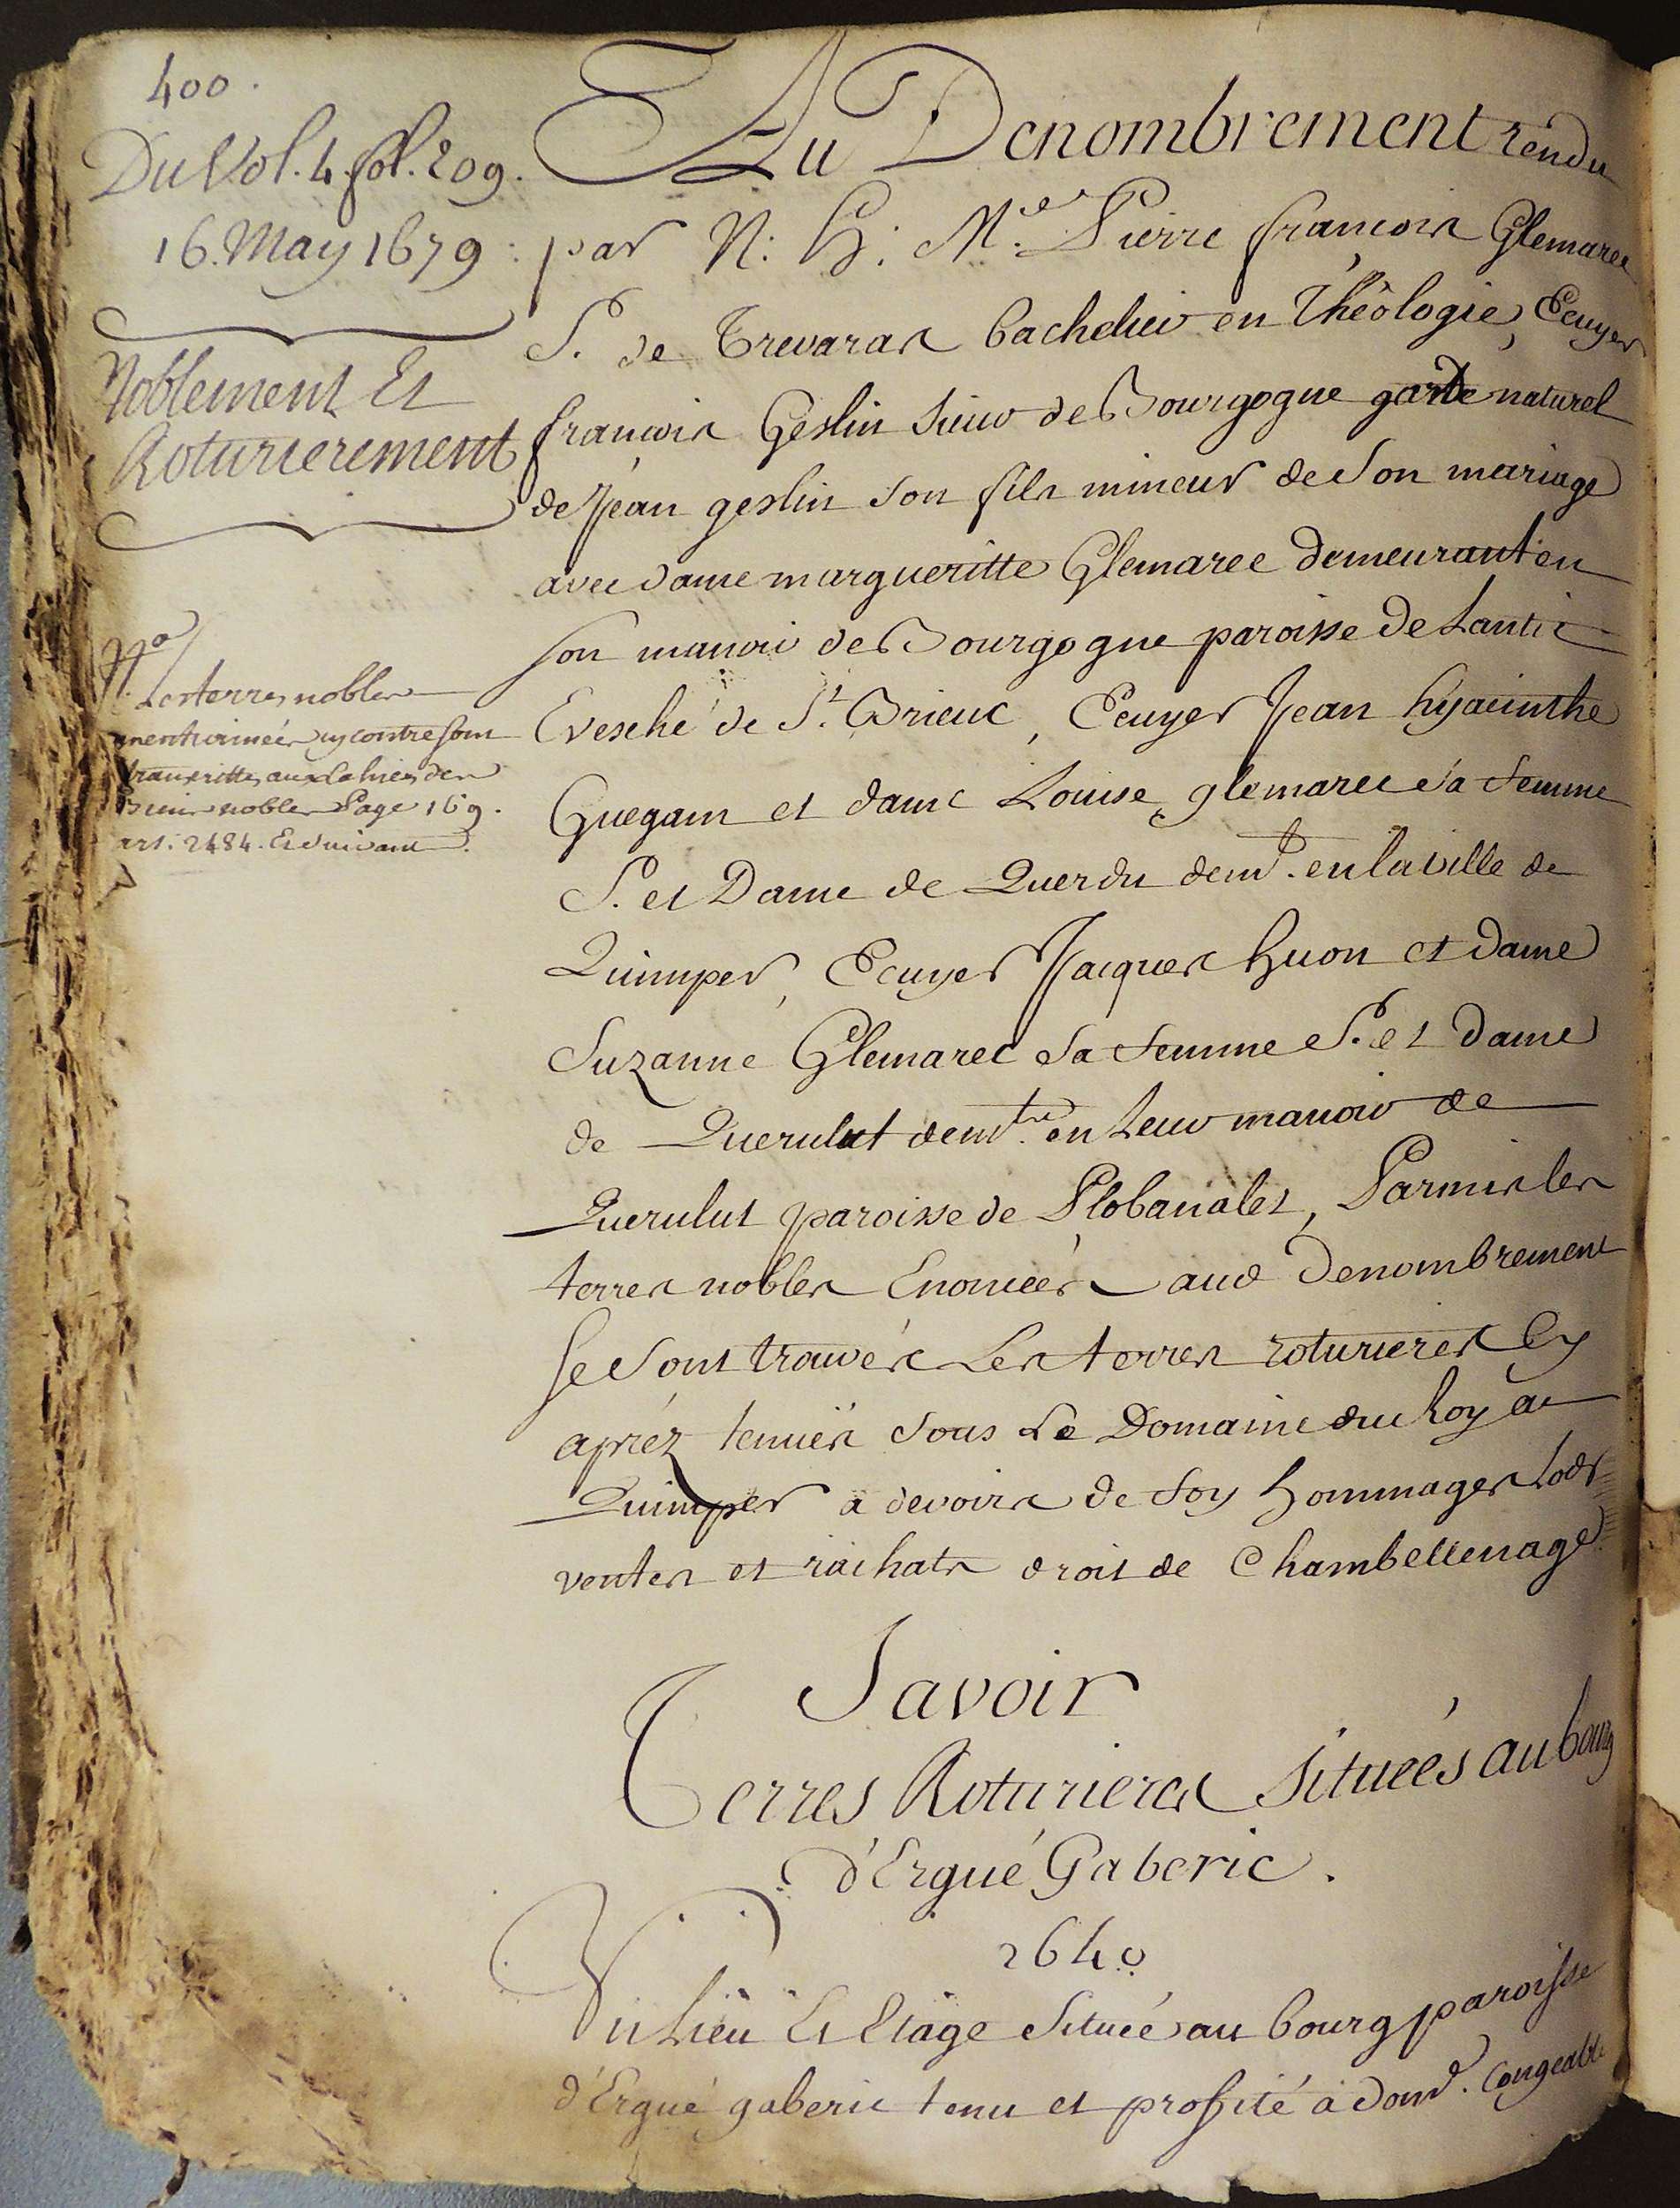 400.
Du Vol. 4. fol. 209.
16. May 1679 :
Noblement Et
Roturierement
Nª
Les terres nobles
mentionnées cy contre sont
transcrittes aux Cahiers des
Biens nobles Page 169.
art. 2484. Et suivant.
Au Denombrement rendu
par N. H. Mre. Pierre françois Glemarec
S. de Trevaras bachelier en Théologie, Ecuyer
françois Geslin sieur de Bourgogne garde naturel
de Jean geslin son fils mineur de son mariage
avec dame margueritte Glemarec demeurant en
son manoir de Bourgogne paroisse de Lantic
Evesché de St. Brieuc, Ecuyer Jean hyacinthe
Guegan et dame Louise glemarec sa femme
S. et Dame de Querdu demt. en la ville de
Quimper, Ecuyer Jacques huon et dame
Suzanne Glemarec sa femme S. et dame
de Querulut demts. en Leur manoir de
Querulut paroisse de Plobanalet, Parmis les
terres nobles Enoncées aud Denombrement
se sont trouvés Les terres roturieres cy
apréz tenuës sous Le Domaine du Roy a
Quimper a devoirs de foy hommages Lods
ventes et rachats droit de Chambellenage
Savoir
Terres Roturieres situées au bourg
d'Ergué Gaberic.
2640
Un Lieu Et Etage situeé au bourg paroisse
d'Ergué gaberic tenu et profité à dome. Congeable